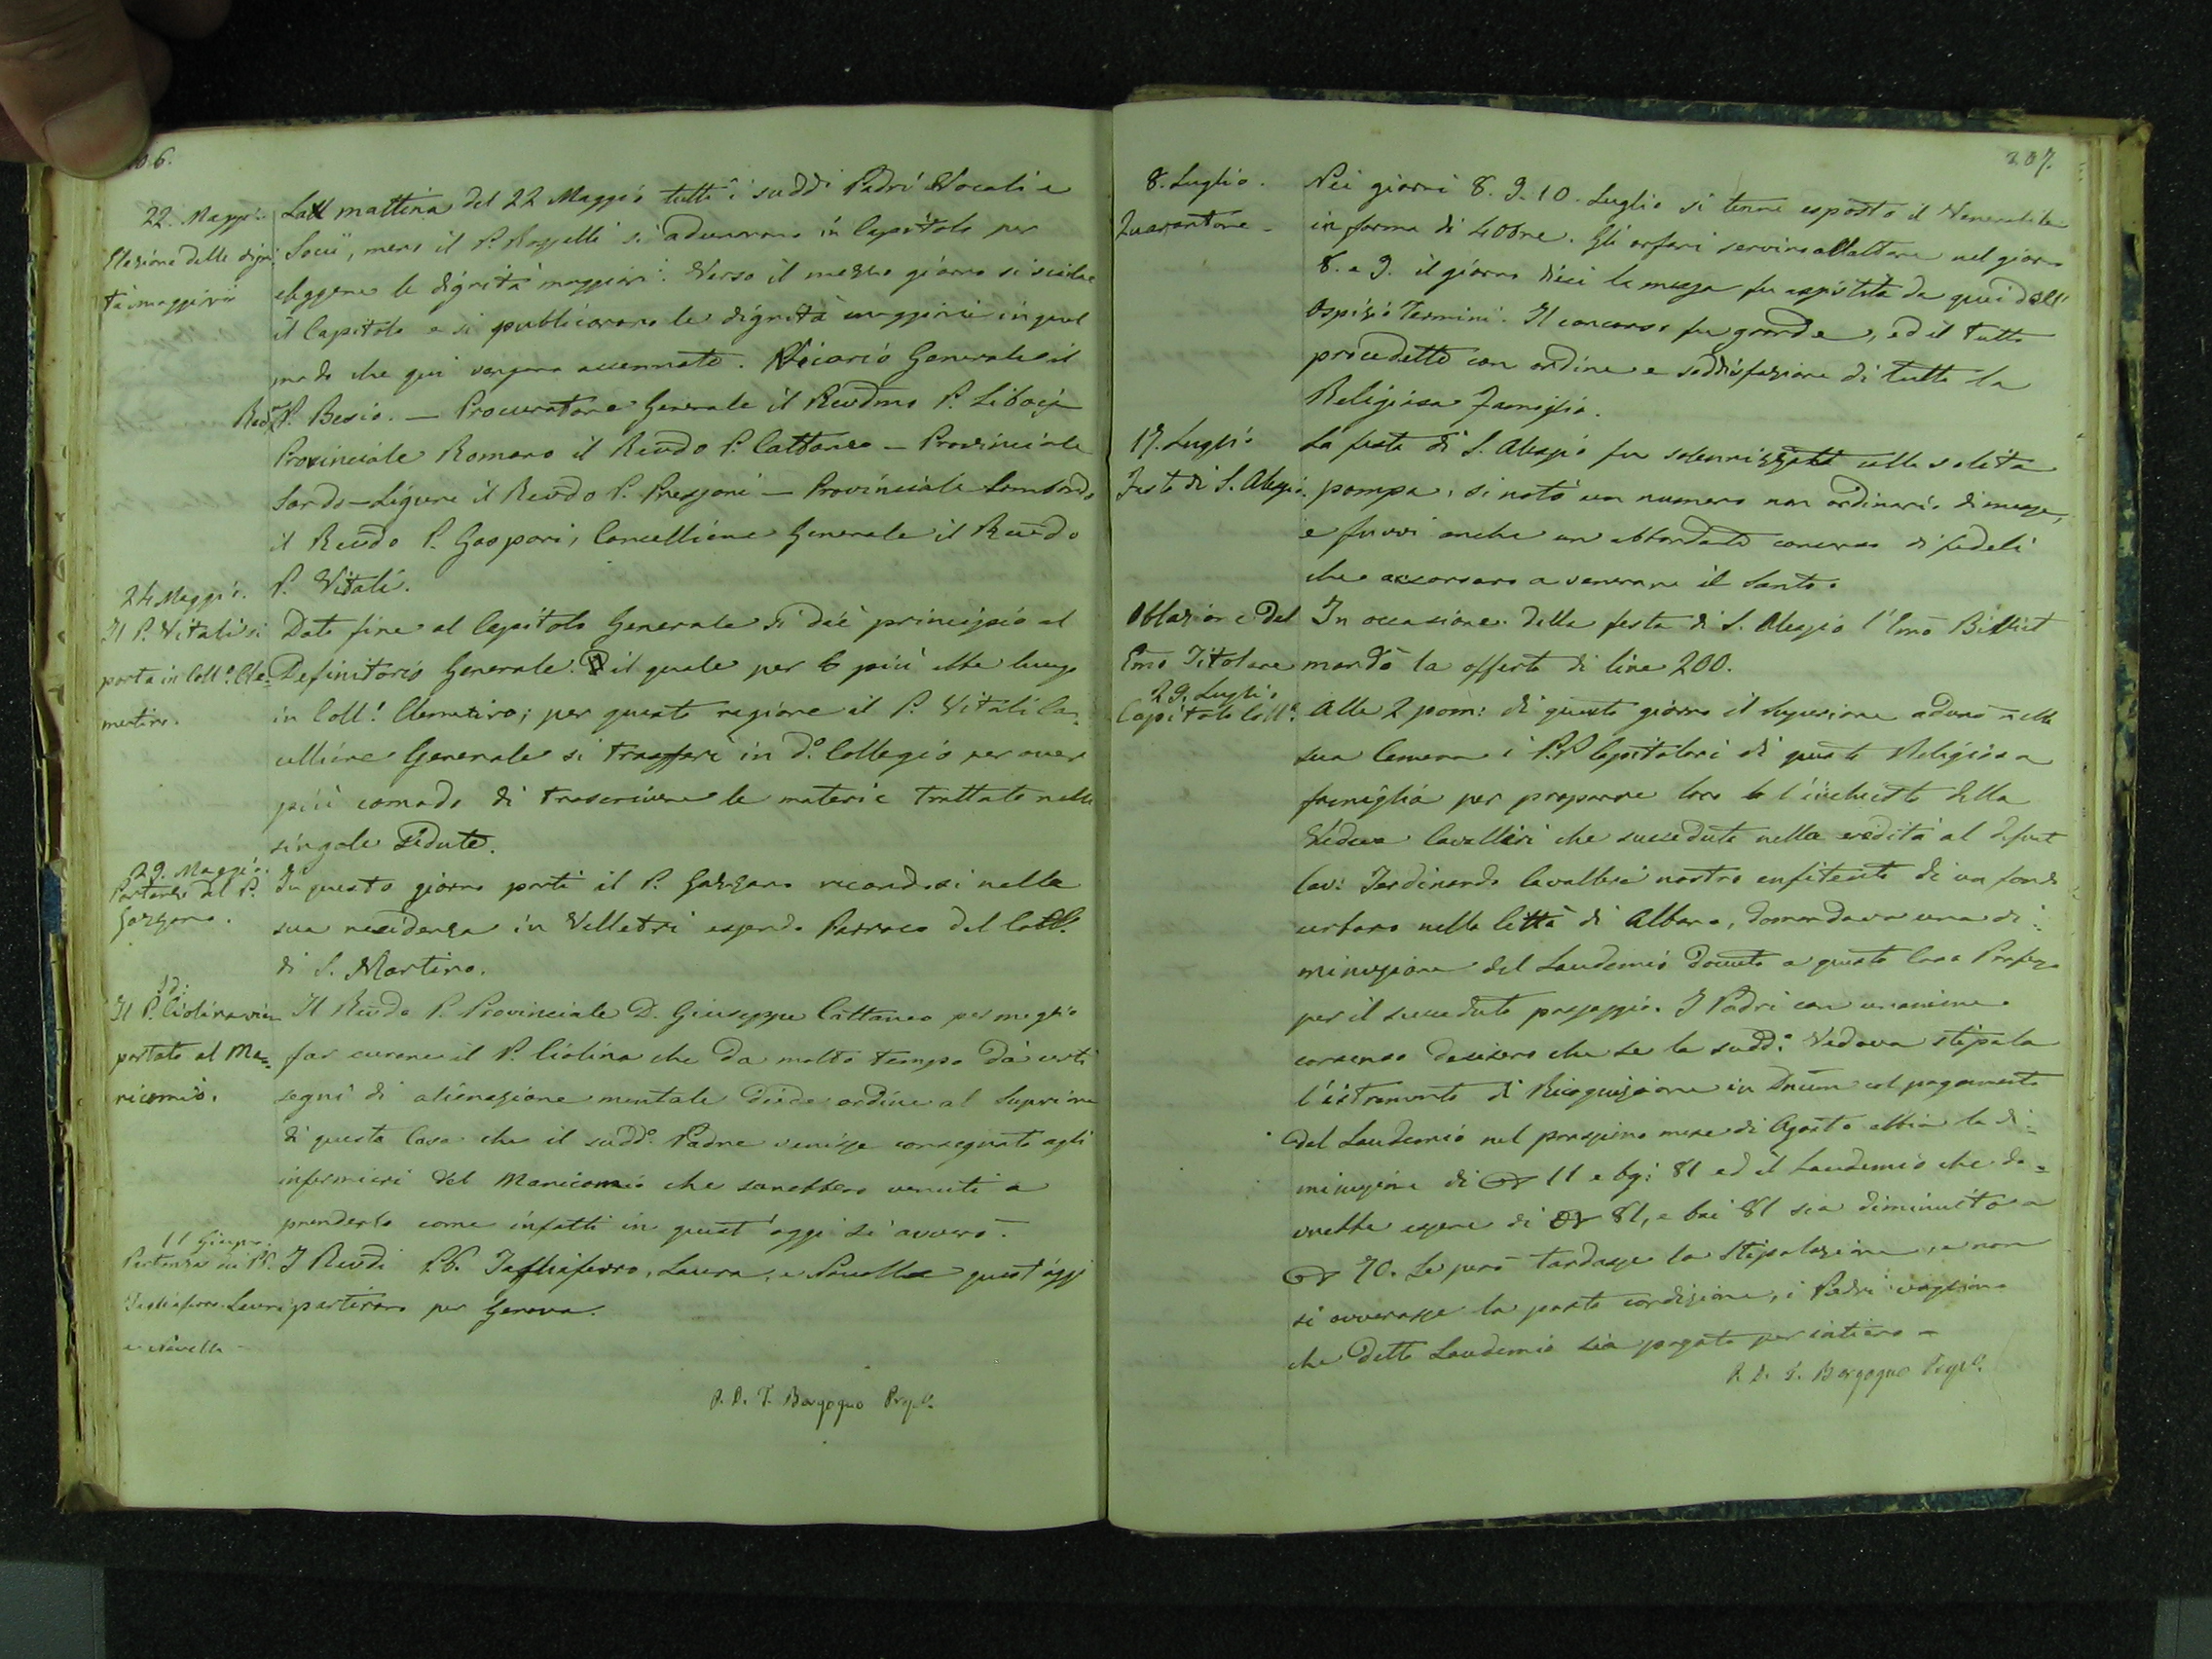 06.
22. Maggio
Elezione delle digni
tà maggiori
La mattina del 22 Maggio tutti i suddi Padri Vocali e
Socii, meno il P. Rosselli si adunarono in Capitolo per
eleggere le dignità maggiori. Verso il mezzo giorno si sciolse
il Capitolo e si publicarono le dignità maggiori in quel
modo che qui vengono accennate. Vicario Generale il
Rmo P. Besio. — Procuratore Generale il Revdmo P. Libois
Provinciale Romano il Revdo P. Cattaneo — Provinciale
Sardo-Ligure il Revdo P. Pressoni — Provinciale Lombardo
il Revdo P. Gaspari, Cancelliere Generale il Revdo
P. Vitali.
24 Maggio.
Il P. Vitali si
porta in Coll.o Cle=
mentino.
Dato fine al Capitolo Generale si diè principio al
Definitorio Generale. il quale per lo più ebbe luogo
in Coll.o Clementino; per questa ragione il P. Vitali Can=
celliere Generale si trasferì in d.o Collegio per aver
più comodo di trascrivere le materie trattate nelle
singole sedute.
29. Maggio.
Partenza del P.
Gazzano.
In questo giorno partì il P. Gazzano recandosi nella
sua residenza in Velletri essendo Parroco del Coll.
di S. Martino.
Id:
Il P. Ciolina vien
portato al Ma=
nicomio.
Il Revdo P. Provinciale D. Giuseppe Cattaneo per meglio
far curare il P. Ciolina che da molto tempo dà certi
segni di alienazione mentale diede ordine al Superiore
di questa Casa che il sudd.o Padre venisse consegnato agli
infermieri del Manicomio che sarebbero venuti a
prenderlo come infatti in quest'oggi si avverò.
11 Giugno.
Partenza dei PP.
Tagliaferro. Laura
e Novella
I Revdi P.P. Tagliaferro, Laura, e Novella quest'oggi
partirono per Genova.
P. D. T. Borgogno Prep.o
207.
8. Luglio.
Quarantore -
Nei giorni 8. 9. 10. Luglio si tenne esposto il Venerabile
in forma di 40ore. Gli orfani servirono all'altare nel giorno
8. e 9. il giorno dieci la messa fu assistita da quei dell'
Ospizio Termini. Il concorso fu grande, ed il tutto
procedette con ordine e soddisfazione di tutta la
Religiosa Famiglia.
17. Luglio
Festa di S. Alessio.
La festa di S. Alessio fu solennizzata colla solita
pompa; si notò un numero non ordinario di messe,
e fuvvi anche un abbondante concorso di fedeli
che accorsero a venerare il Santo.
Oblazione del
Emo Titolare
In occasione della festa di S. Alessio l'Emo Billiet
mandò la offerta di lire 200.
29. Luglio
Capitolo Coll.e
Alle 2 pom: di questo giorno il Superiore adunò nella
sua Camera i P.P. Capitolari di questa Religiosa
famiglia per proporre loro l'inchiesta della
Vedova Cavallieri che succeduta nella eredità al defunt
Cav: Ferdinando Cavallieri nostro enfiteuta di un fondo
urbano nella Città di Albano, domandava una di=
minuzione del Laudemio dovuto a questa Casa Professa
per il succeduto passaggio. I Padri con unanime
consenso decisero che se la sudd.a Vedova stipula
l'istromento di Ricognizione in Dnum col pagamento
del Laudemio nel prossimo mese di Agosto abbia la di=
minuzione di 11 e bj: 81 ed il Laudemio che do=
vrebbe essere di 81, e bai 81 sia diminuito a
70. Se però tardasse la stipolazione, e non
si avverasse la posta condizione, i Padri vogliono
che detto Laudemio sia pagato per intiero -
P. D. T. Borgogno Prep.o